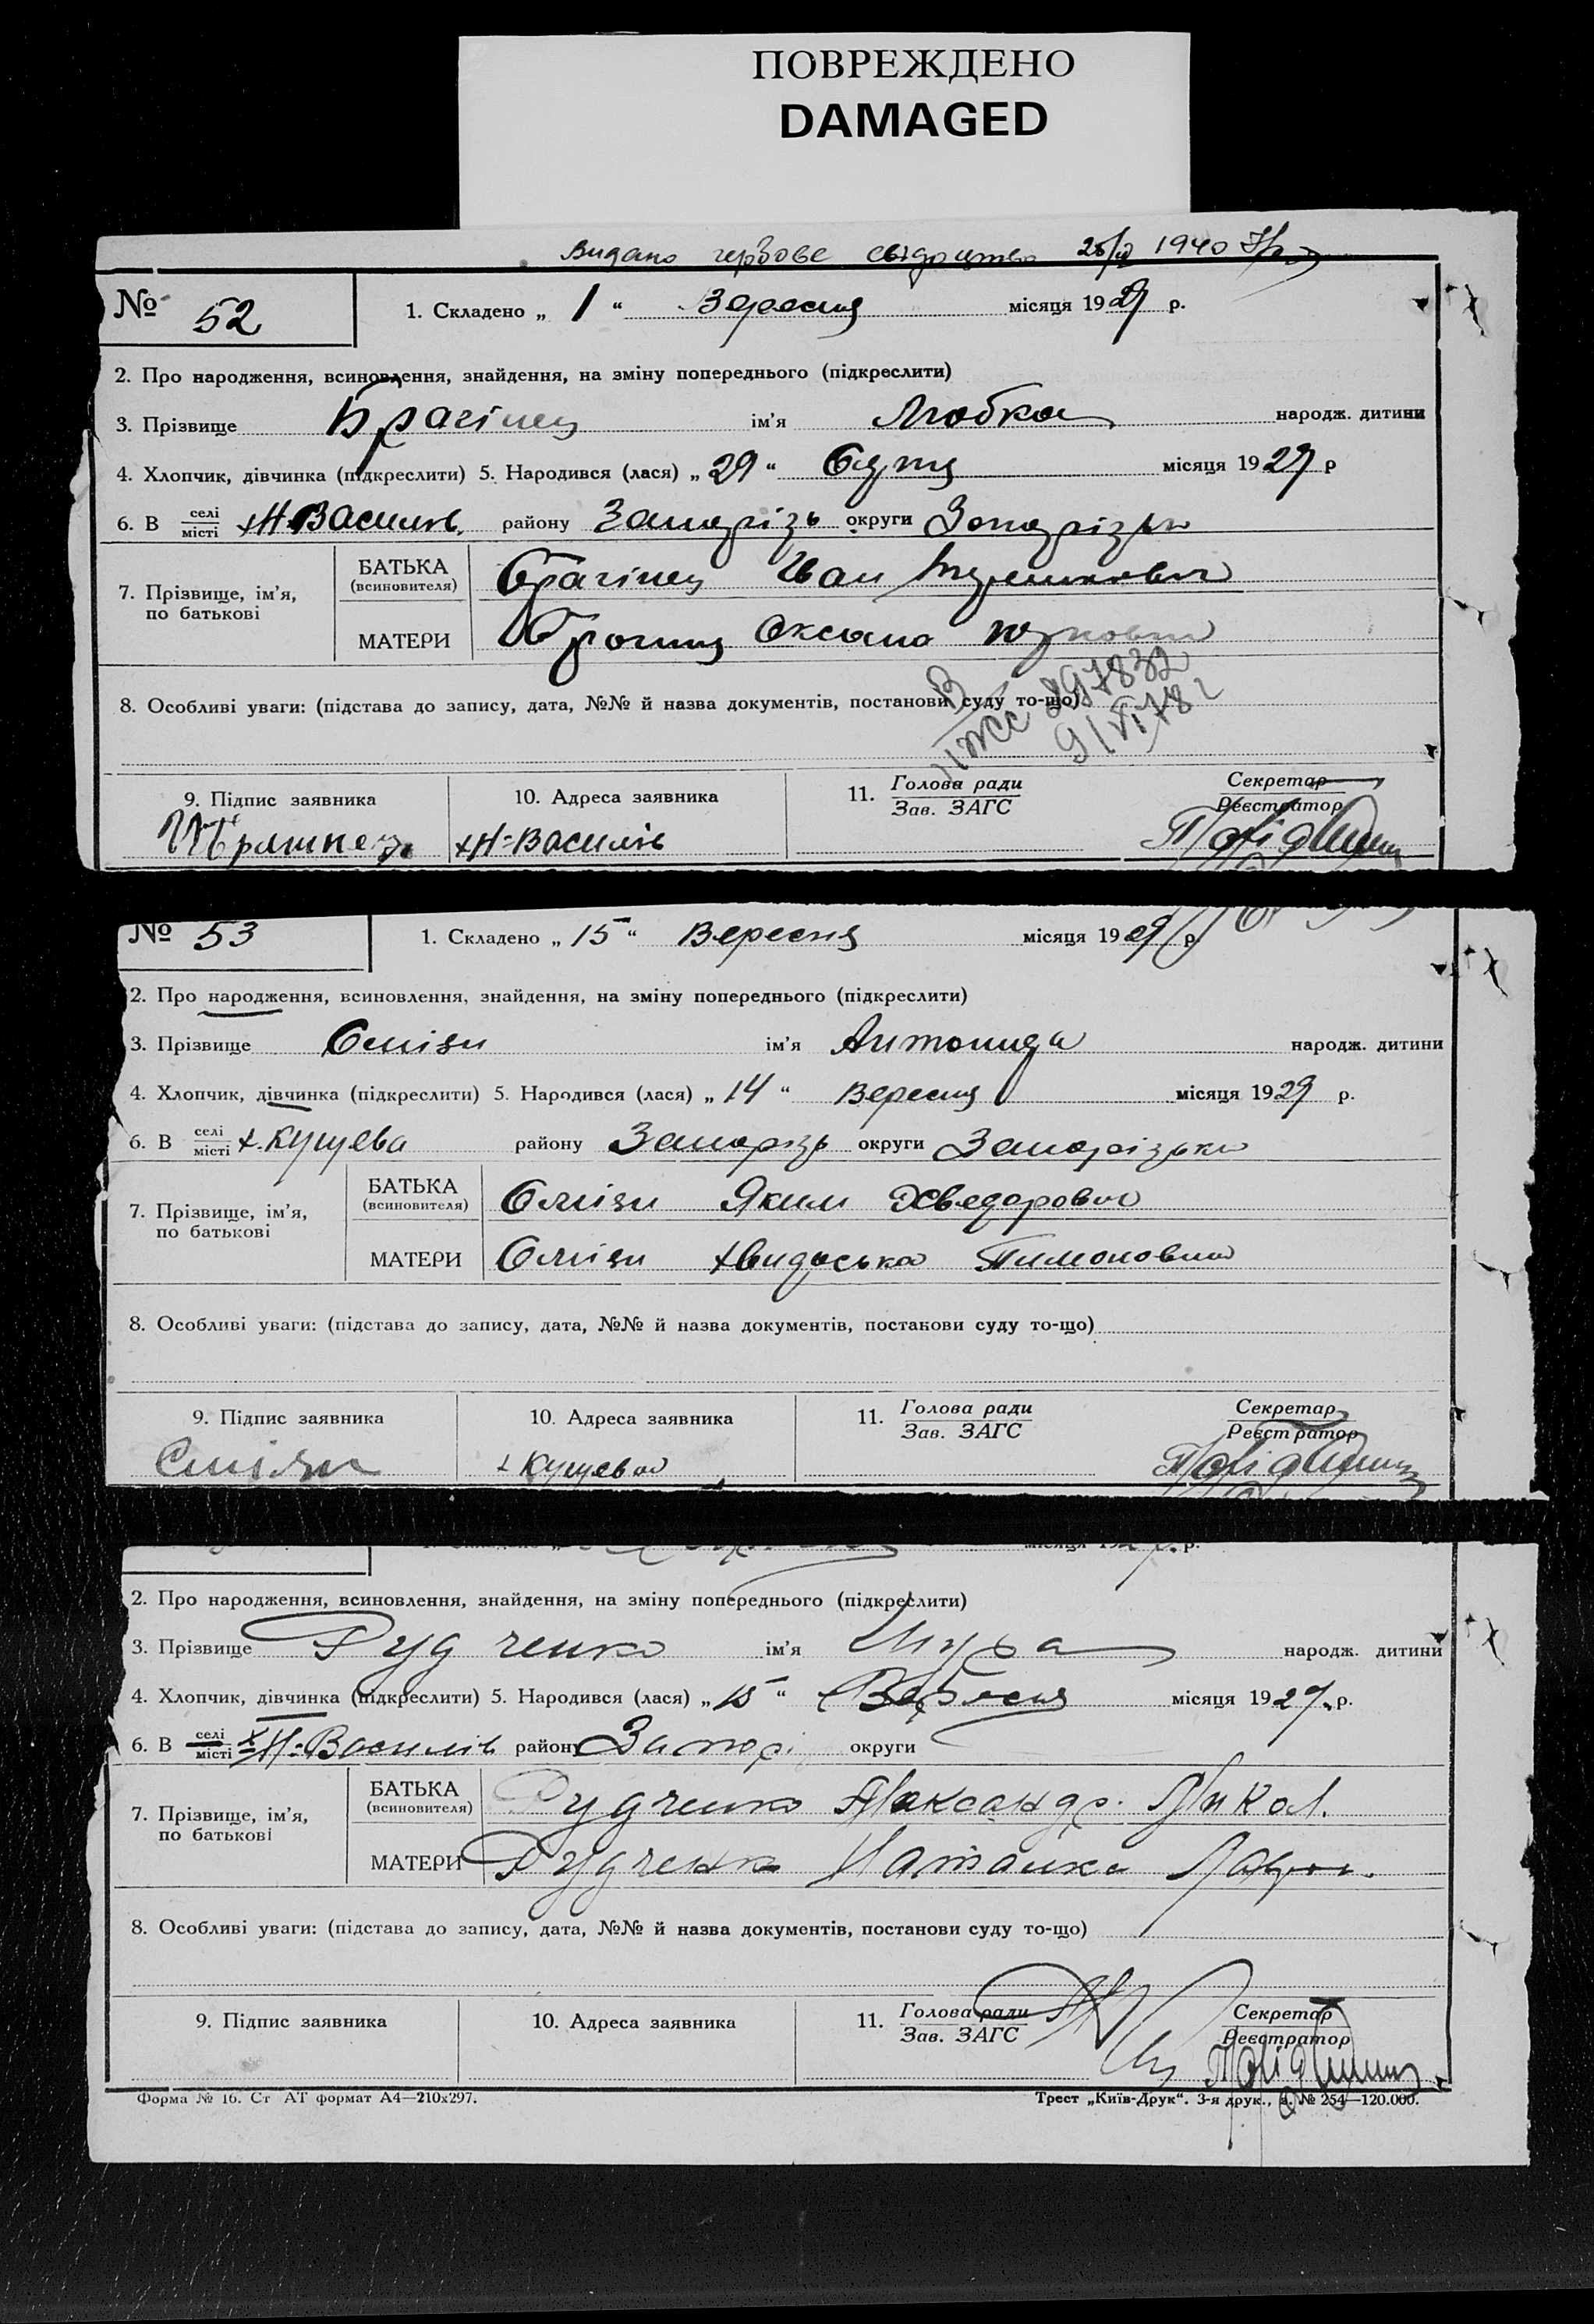 ПОВРЕЖДЕНО
DAMAGED
Видано гербове свідоцтво 25/VI 1940
№ 52 1. Складено „ 1 “ Вересня місяця 1929 р.
2. Про народження, всиновлення, знайдення, на зміну попереднього (підкреслити)
3. Прізвище Брагінец ім’я Любка народж. дитини
4. Хлопчик, дівчинка (підкреслити) 5. Народився (лася) „ 29 “ Серпня місяця 1929 р
6. В селі місті х Н-Василів. району Запорізь округи Запорізька
7. Прізвище, ім’я, по батькові
БАТЬКА (всиновителя) Брагінец Іван
МАТЕРИ Оксана
8. Особливі уваги: (підстава до запису, дата, №№ й назва документів, постанови суду то-що)
II ЖС 897832
9/VI 78 г
9. Підпис заявника 10. Адреса заявника 11. Голова ради Зав. ЗАГС Секретар Реєстратор
х Н-Василів
№ 53 1. Складено „ 15 “ Вересня місяця 1929 р.
2. Про народження, всиновлення, знайдення, на зміну попереднього (підкреслити)
3. Прізвище ім’я Антонида народж. дитини
4. Хлопчик, дівчинка (підкреслити) 5. Народився (лася) „ 14 “ Вересня місяця 1929 р.
6. В селі місті х. Кущева району Запорізь округи Запорізька
7. Прізвище, ім’я, по батькові
БАТЬКА (всиновителя) Яким Хведорович
МАТЕРИ Хвидоська Тимоновна
8. Особливі уваги: (підстава до запису, дата, №№ й назва документів, постанови суду то-що)
9. Підпис заявника 10. Адреса заявника 11. Голова ради Зав. ЗАГС Секретар Реєстратор
х Кущева
2. Про народження, всиновлення, знайдення, на зміну попереднього (підкреслити)
3. Прізвище Рудченко ім’я Шура народж. дитини
4. Хлопчик, дівчинка (підкреслити) 5. Народився (лася) „ 15 “ Вересня місяця 1929 р.
6. В селі місті х Н-Василів району Запорі округи
7. Прізвище, ім’я, по батькові
БАТЬКА (всиновителя) Рудченко Александр. Микол.
МАТЕРИ Рудченко Наталка
8. Особливі уваги: (підстава до запису, дата, №№ й назва документів, постанови суду то-що)
9. Підпис заявника 10. Адреса заявника 11. Голова ради Зав. ЗАГС Секретар Реєстратор
Форма № 16. Ст АТ формат А4—210х297. Трест „Київ-Друк“. 3-я друк., з. № 254—120.000.